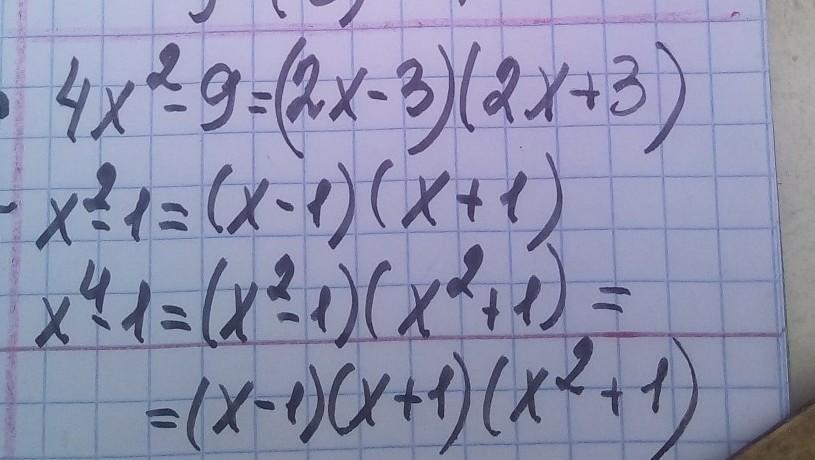 4x²-9=(2x-3)(2x+3)
x²-1=(x-1)(x+1)
x⁴-1=(x²-1)(x²+1)=
=(x-1)(x+1)(x²+1)